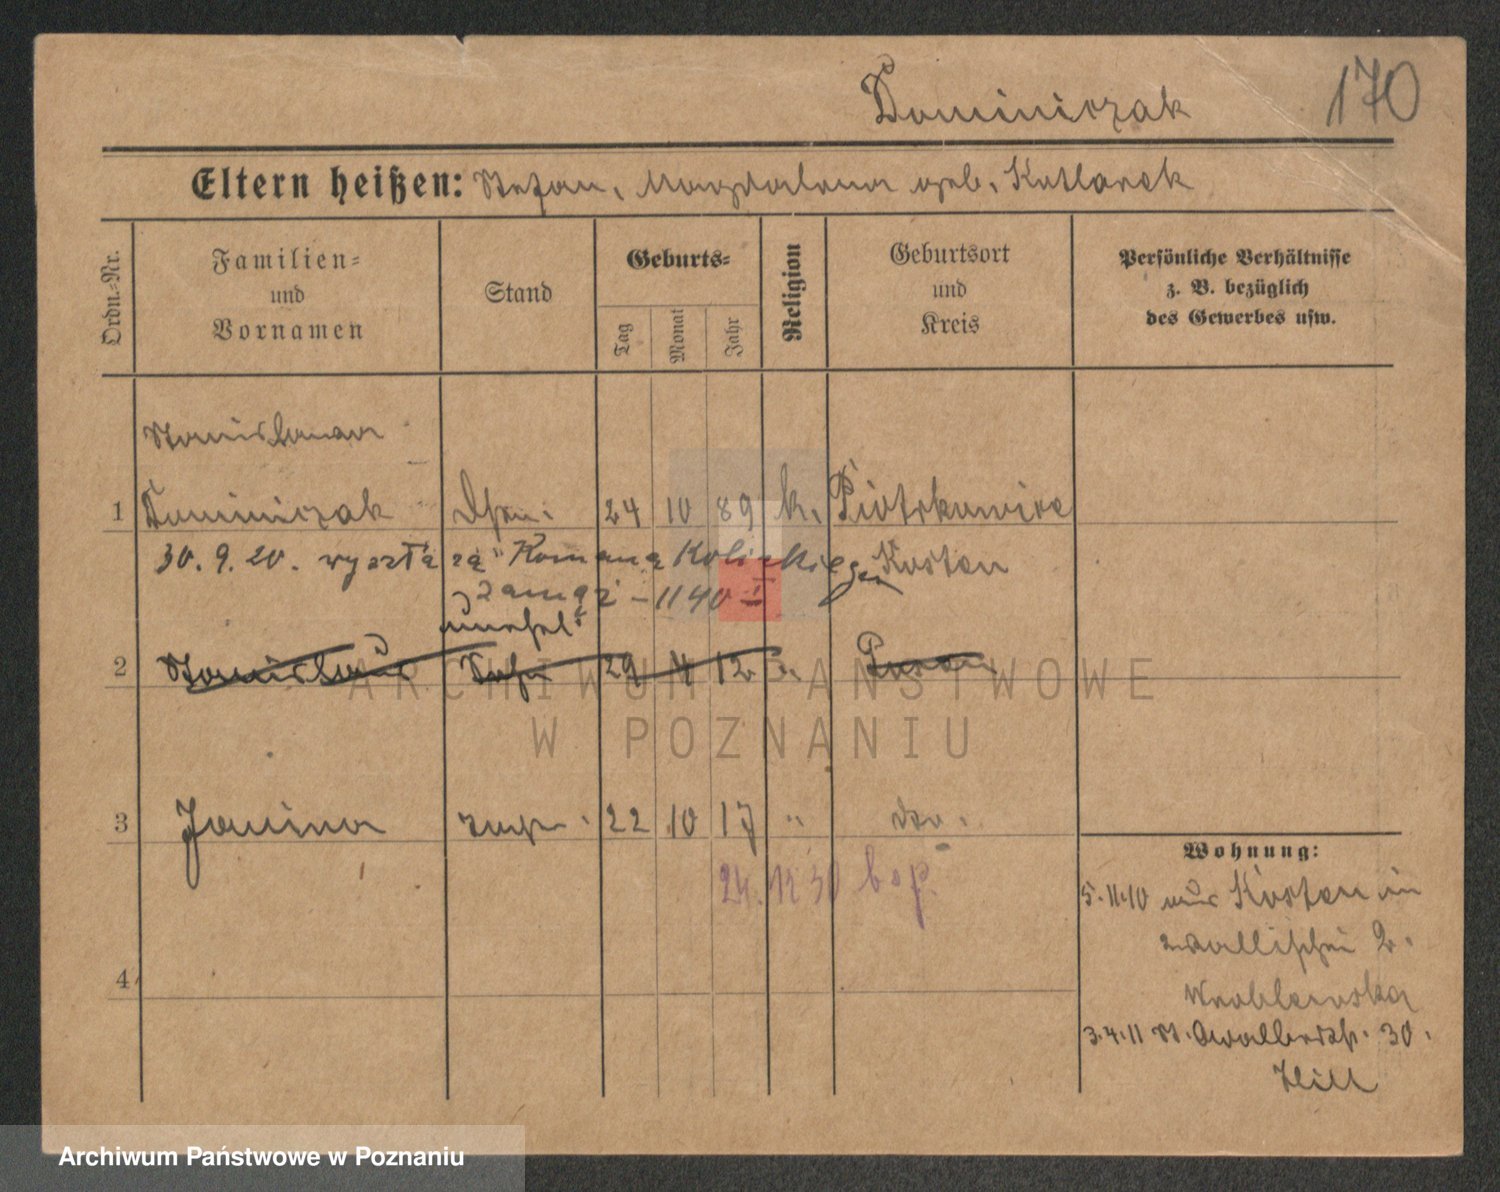 Dominiczak
170
Eltern heißen: Stefan, Magdalena geb. Kotlarek
Ordn.-Nr.
Familien-
und
Vornamen
Stand
Geburts-
Tag
Monat
Jahr
Religion
Geburtsort
und
Kreis
Persönliche Verhältnisse
z. B. bezüglich
des Gewerbes usw.
Stanislawa
1 Dominiczak 24 10 89 k. Piotrkowice
30. 9. 20. wyszła za Romana Kolickiego Kosten
zamąż - 1140 I
unehel.
2 Stanislaus Sohn 29 4 12 k. Posen
3 Janina 22 10 17 " do.
24. 12 30
4
Wohnung:
5.11.10 aus Kosten in
Wallischei 2.
Wroblewska
3.4.11 St. Adalbertstr. 30.
ARCHIWUM PAŃSTWOWE
W POZNANIU
Archiwum Państwowe w Poznaniu